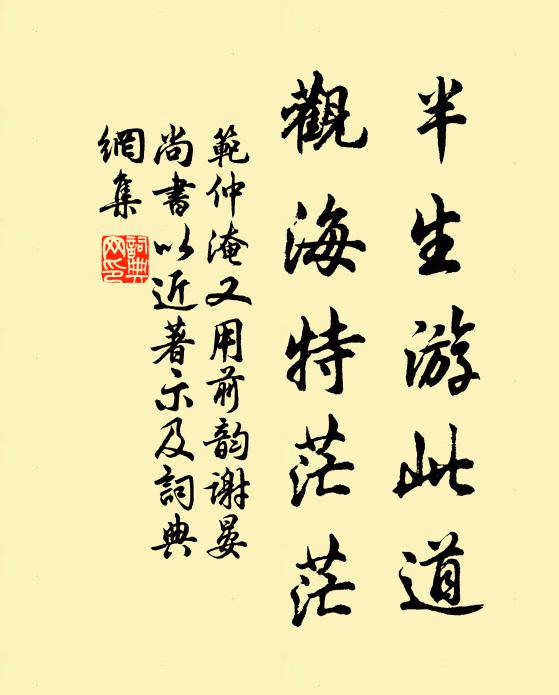 半生游此道
觀海特茫茫
範仲淹又用前韵謝晏
尚書以近著示及詞典
網集
詞典
网印